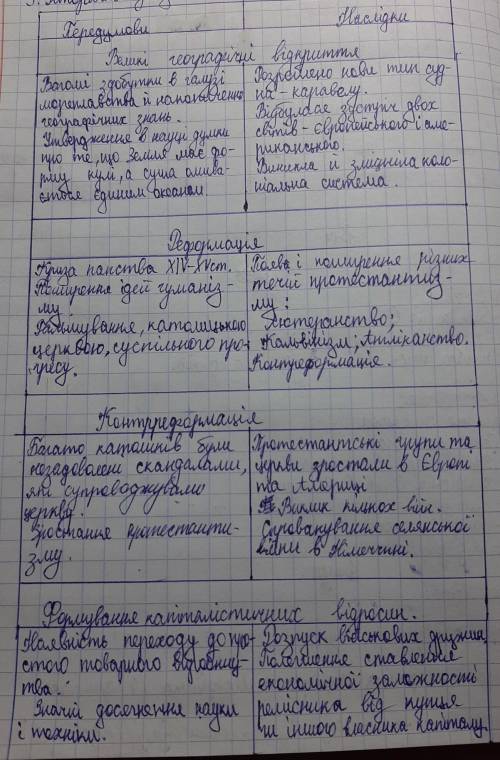 Передумови
Наслідки
Великі географічні відкриття
Вагомі здобутки в галузі
мореплавства й накопичення
географічних знань.
Утвердження в науці думки
про те, що Земля має фо-
рму кулі, а суша омива-
ється єдиним океаном.
Розроблено нови тип суд-
на - каравелу.
Відбулася зустріч двох
світів - європейського і аме-
риканського.
Виникла й зміцніла коло-
ніальна система.
Реформація
Криза папства XIV-XVст.
Поширення ідей гуманіз-
му.
Гальмування, католицькою
церквою, суспільного про-
гресу.
Поява і поширення різних
течій протестантиз-
му:
Лютеранство;
Кальвінізм; Англіканство.
Контреформація.
Контрреформація
Багато католиків були
незадоволені скандалами,
які супроводжували
церкву.
Зростання протестанти-
зму.
Протестантські групи та
церкви зростали в Європі
та Америці
Виклик кількох війн.
Спровакування селянської
війни в Німеччині.
Формування капіталістичних відносин.
Наявність переходу до про-
стого товарного виробниц-
тва.
Значні досягнення науки
і техніки.
Розпуск військових дружин.
Посилення ставлення
економічної залежності
ремісника від купця
чи іншого власника капіталу